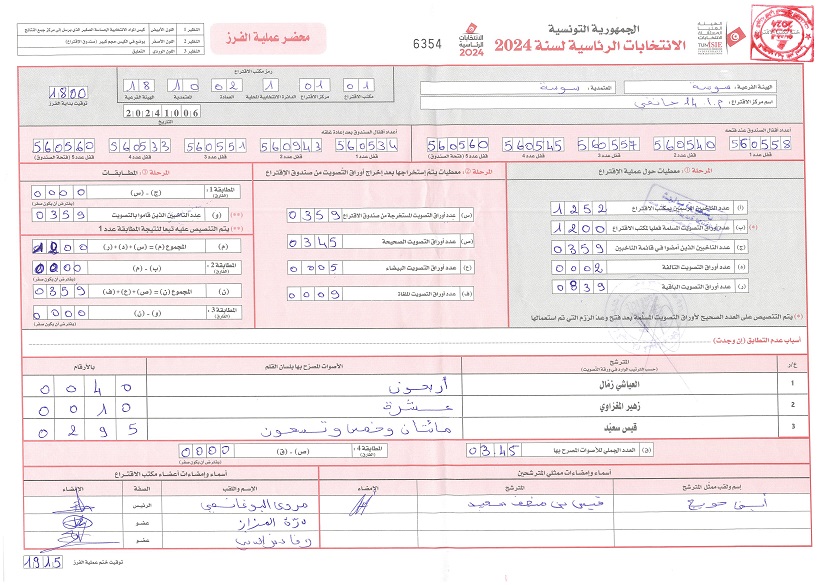 الجمهورية التونسية
الانتخابات الرئاسية لسنة 2024
الهيئة
العليا
المستقلة
للانتخابات
TUNISIE
الانتخابات
الرئاسية
2024
6354
محضر عملية الفرز
النظير 1 اللون الأبيض
النظير 2 اللون الأصفر يوضع في الكيس حجم كبير (صندوق الاقتراع)
النظير 3 اللون الوردي التعليق
الهيئة الفرعية: سوسة المعتمدية: سوسة
اسم مركز الاقتراع:
رمز مكتب الاقتراع
01 01 02 10 18
مكتب الاقتراع مركز الاقتراع الدائرة الانتخابية المحلية العمادة المعتمدية الهيئة الفرعية
20241006
التاريخ
1800
توقيت بداية الفرز
أعداد أقفال الصندوق عند فتحه
560558 560540 560557 560545 560560
قفل عدد 1 قفل عدد 2 قفل عدد 3 قفل عدد 4 قفل عدد 5 (فتحة الصندوق)
أعداد أقفال الصندوق بعد إعادة غلقه
560534 560543 560551 560533 560560
قفل عدد 1 قفل عدد 2 قفل عدد 3 قفل عدد 4 قفل عدد 5 (فتحة الصندوق)
المرحلة ①: معطيات حول عملية الاقتراع
(أ) عدد الناخبين المرسمين بمكتب الاقتراع 1252
(ب) عدد أوراق التصويت المسلمة فعليا لمكتب الاقتراع 1200
(ج) عدد الناخبين الذين أمضوا في قائمة الناخبين 0359
(د) عدد أوراق التصويت التالفة 0002
(ر) عدد أوراق التصويت الباقية 0839
(*) يتم التنصيص على العدد الصحيح لأوراق التصويت المسلمة بعد فتح وعد الرزم التي تم استعمالها
المرحلة ②: معطيات يتم استخراجها بعد إخراج أوراق التصويت من صندوق الاقتراع
(س) عدد أوراق التصويت المستخرجة من صندوق الاقتراع 0359
(ص) عدد أوراق التصويت الصحيحة 0345
(ع) عدد أوراق التصويت البيضاء 0005
(ف) عدد أوراق التصويت الملغاة 0009
المرحلة ③: المطابقات
المطابقة 1: (الفارق) (ج) - (س) 0000
(يفترض أن يكون صفر)
(**) (و) عدد الناخبين الذين قاموا بالتصويت 0359
(**) يتم التنصيص عليه تبعا لنتيجة المطابقة عدد 1
(م) المجموع (م) = (س)+(د)+(ر) 1200
المطابقة 2: (الفارق) (ب) - (م) 0000
(يفترض أن يكون صفر)
(ن) المجموع (ن) = (ص)+(ع)+(ف) 0359
المطابقة 3: (الفارق) (و) - (ن) 0000
(يفترض أن يكون صفر)
أسباب عدم التطابق (إن وجدت)
ع/ر المترشح الأصوات المصرح بها بلسان القلم بالأرقام
(حسب الترتيب الوارد في ورقة التصويت)
1 العياشي زمّال أربعون 0040
2 زهير المغزاوي عشرة 0010
3 قيس سعيّد مائتان وخمس وتسعون 0295
(ق) العدد الجملي للأصوات المصرح بها 0345
المطابقة 4: (الفارق) (ص) - (ق) 0000
(يفترض أن يكون صفر)
أسماء وإمضاءات ممثلي المترشحين
إسم ولقب ممثل المترشح المترشح الإمضاء
قيس بن منصف سعيد
أسماء وإمضاءات أعضاء مكتب الاقتراع
الإسم واللقب الصفة الإمضاء
الرئيس
درة المزاز عضو
عضو
توقيت ختم عملية الفرز 1915